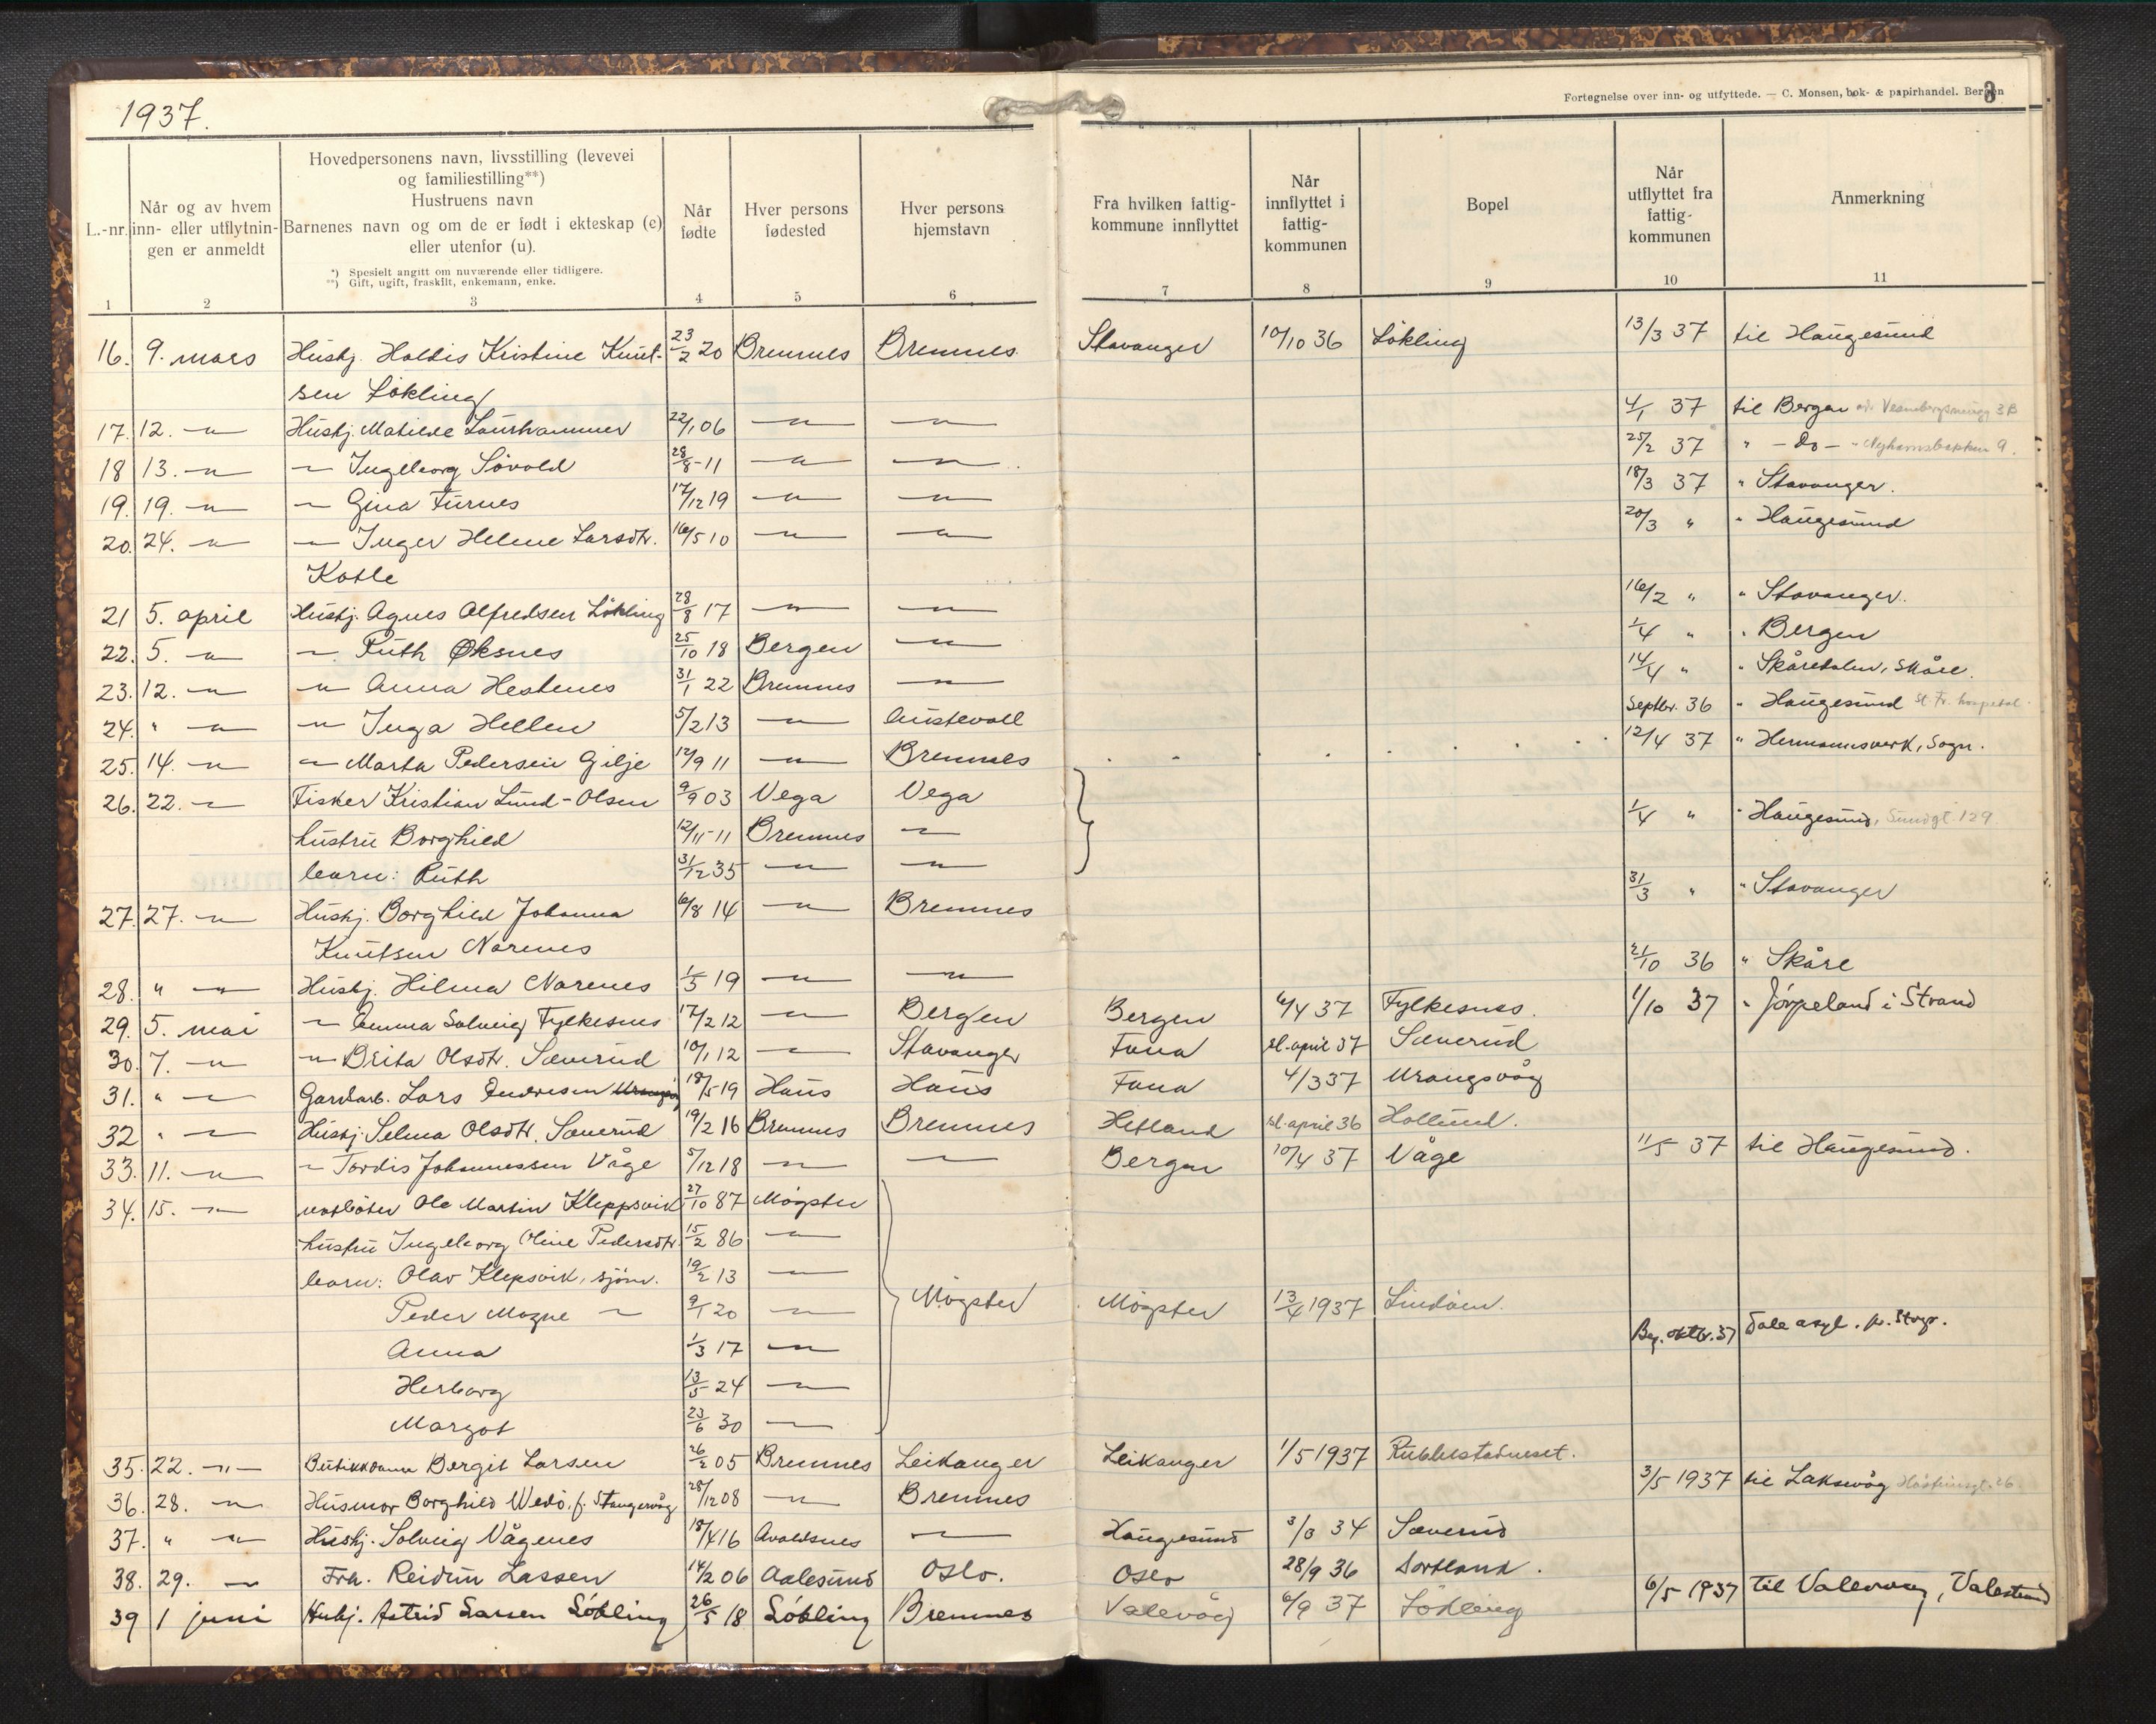 1937.
Fortegnelse over inn- og utflyttede. — C. Monsen, bok- & papirhandel. Bergen
3
L.-nr. | Når og av hvem inn- eller utflytningen er anmeldt | Hovedpersonens navn, livsstilling (levevei og familiestilling**) Hustruens navn Barnenes navn og om de er født i ekteskap (e) eller utenfor (u). | Når fødte | Hver persons fødested | Hver persons hjemstavn | Fra hvilken fattigkommune innflyttet | Når innflyttet i fattigkommunen | Bopel | Når utflyttet fra fattigkommunen | Anmerkning
*) Spesielt angitt om nuværende eller tidligere.
**) Gift, ugift, fraskilt, enkemann, enke.
1 2 3 4 5 6 7 8 9 10 11
16. 9. mars Hushj. Haldis Kristine Knut- 23/2 20 Bremnes Bremnes Stavanger 10/10 36 Lökling 13/3 37 til Haugesund
sen Lökling
17. 12. — " — Hushj. Matilde Laurhammer 22/1 06 — " — — " — 4/1 37 til Bergen
18 13. — " — — " — Ingeborg Sövold 28/8-11 — " — — " — 25/2 37 " — do — " Nyhavnsbakken 9.
19. 19. — " — — " — Gina Furnes 17/12 19 — " — — " — 18/3 37 " Stavanger.
20. 24. — " — — " — Inger Helene Larsdtr. 16/5 10 — " — — " — 20/3 " " Haugesund
Katle
21 5. april Hushj. Agnes Alfredsen Lökling 28/8 17 — " — — " — 16/2 " " Stavanger.
22. 5. — " — — " — Ruth Øksnes 25/10 18 Bergen — " — 1/4 " " Bergen
23. 12. — " — — " — Anna Hestenes 31/1 22 Bremnes — " — 14/4 " " Skåredalen, Skåre.
24. " — " — — " — Inga Hellen 5/2 13 — " — Austevoll Septbr. 36 " Haugesund St. Fr. hospital.
25. 14. — " — — " — Marta Pedersen Gilje 12/9 11 — " — Bremnes 12/4 37 " Hermansverk, Sogn.
26. 22. — " — Fisker Kristian Lund-Olsen 9/9 03 Vega Vega 1/4 " " Haugesund, Sundgt. 129
hustru Borghild 12/11-11 Bremnes — " —
barn: Ruth 31/12 35 — " — — " —
27. 27. — " — Hushj. Borghild Johanna 6/8 14 — " — Bremnes 31/3 " " Stavanger
Knutsen Narenes
28. " — " — Hushj. Hilma Narenes 1/5 19 — " — — " — 21/10 36 " Skåre
29. 5. mai — " — Emma Solveig Fylkesnes 17/2 12 — " — Bergen Bergen 6/4 37 Fylkesnes. 1/10 37 " Jörpeland i Strand
30. 7. — " — — " — Brita Olsdtr. Sæverud 10/1 12 — " — Stavanger Fana sl. april 37 Sæverud
31. " — " — Gardarb. Lars Endresen 18/5 19 Haus Haus Fana 4/3 37 Urangsvåg
32 " — " — Hushj. Selma Olsdtr. Sæverud 19/2 16 Bremnes Bremnes Hetland sl. april 36 Hollund.
33. 11. — " — — " — Tordis Johannessen Våge 5/12 18 — " — — " — Bergen 10/4 37 Våge 11/5 37 til Haugesund.
34. 15. — " — notböter Ole Martin Kleppsvik 27/10 87 Mögster
hustru Ingeborg Oline Pedersdtr. 15/2 86 — " —
barn: Olav Klepsvik, sjöm. 19/2 13 — " —
Peder Magne — " — 9/1 20 — " — Mögster Mögster 13/4 1937 Lindöen.
Anna 1/3 17 — " — Beg. oktbr. 37 Dale asyl. pr. Stvgr.
Herborg 13/5 24 — " —
Margot 23/6 30 — " —
35. 22. — " — Butikkdame Bergit Larsen 26/2 05 Bremnes Leikanger Leikanger 1/5 1937 Rubbestadneset.
36. 28. — " — Husmor Borghild Wedö, f. Stangervåg 28/12 08 — " — Bremnes 3/5 1937 til Laksevåg
37. " — " — Hushj. Solveig Vågenes 18/4 16 Avaldsnes — " — Haugesund 3/3 34 Sæverud
38. 29. — " — Frk. Reidun Lassen 14/2 06 Aalesund Oslo. Oslo 28/9 36 Sortland.
39 1 juni Hushj. Astrid Larsen Lökling 26/5 18 Lökling Bremnes Valevåg 6/9 37 Lökling 6/5 1937 til Valevaag, Valestrand